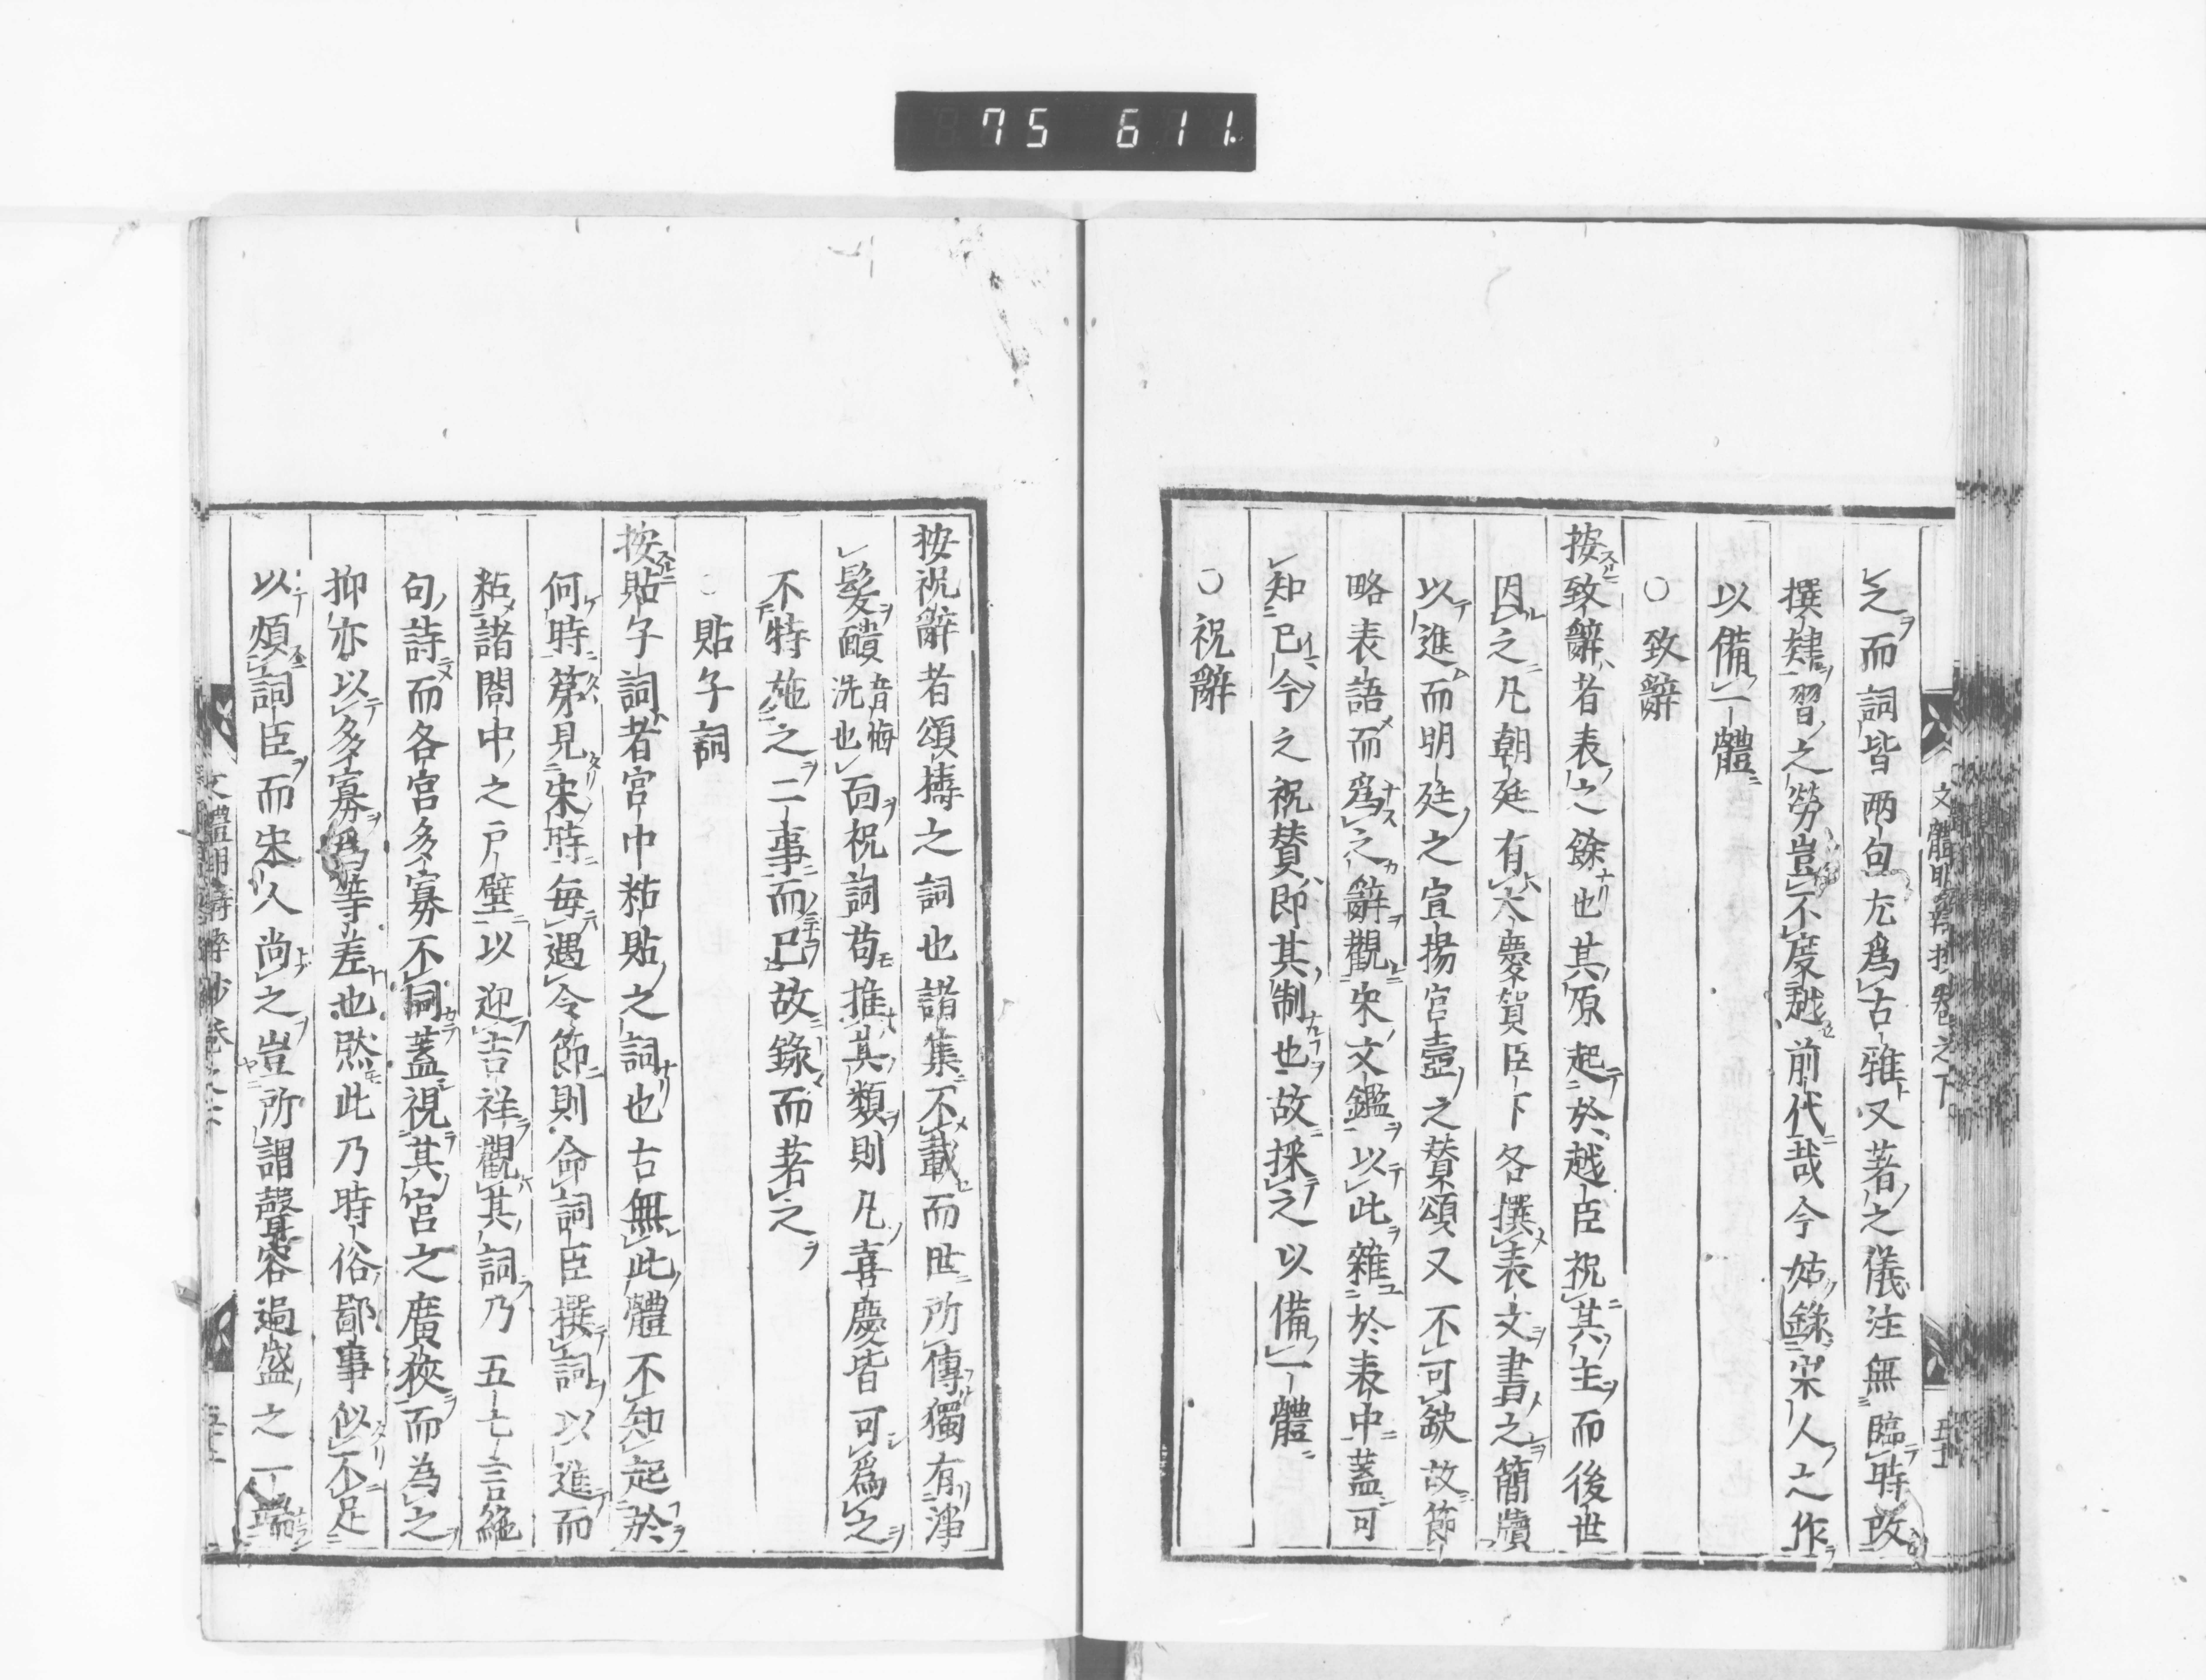 75 611.
文體明辯抄卷之下
之而詞皆兩句尤爲古雅又著之儀注無臨時改
撰肄習之勞豈不度越前代哉今姑錄宋人之作
以備一體
○致辭
按致辭者表之餘也其原起於越臣祝其主而後世
因之凡朝廷有大慶賀臣下各撰表文書之簡牘
以進而明廷之宣揚宮壼之贊頌又不可缺故節
略表語而爲之辭觀宋文鑑以此雜於表中蓋可
知已今之祝贊即其制也故採之以備一體
○祝辭
按祝辭者頌禱之詞也諸集不載而世所傳獨有淨
髮靧音悔洗也面祝詞苟推其類則凡喜慶皆可爲之
不特施之二事而已故錄而著之
○貼子詞
按貼子詞者宮中粘貼之詞也古無此體不知起於
何時第見宋時每遇令節則命詞臣撰詞以進而
粘諸閤中之戶壁以迎吉祥觀其詞乃五七言絕
句詩而各宮多寡不同蓋視其宮之廣狹而為之
抑亦以多寡爲等差也然此乃時俗鄙事似不足
以煩詞臣而宋人尚之豈所謂聲容過盛之一端